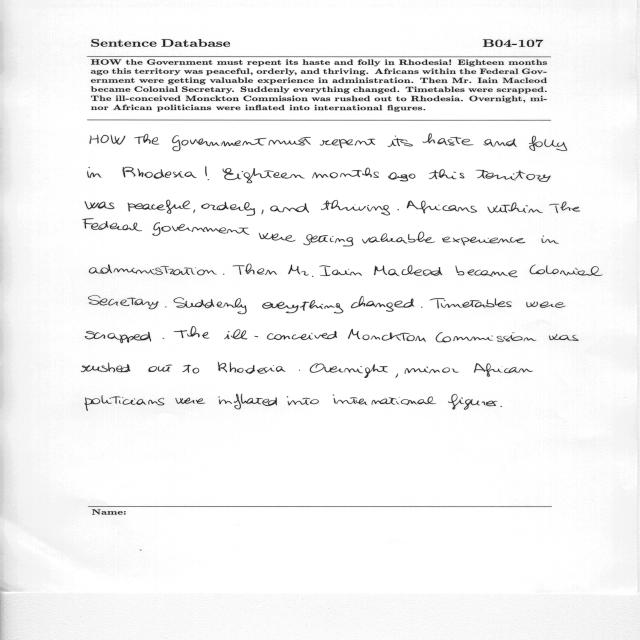 Sentence Database B04-107
HOW the Government must repent its haste and folly in Rhodesia! Eighteen months
ago this territory was peaceful, orderly, and thriving. Africans within the Federal Gov-
ernment were getting valuable experience in administration. Then Mr. Iain Macleod
became Colonial Secretary. Suddenly everything changed. Timetables were scrapped.
The ill-conceived Monckton Commission was rushed out to Rhodesia. Overnight, mi-
nor African politicians were inflated into international figures.
HOW The Government must repent its haste and folly
in Rhodesia! Eighteen months ago this territory
was peaceful, orderly, and thriving. Africans within The
Federal Government were getting valuable experience in
administration. Then Mr. Iain Macleod became Colonial
Secretary. Suddenly everything changed. Timetables were
scrapped. The ill-conceived Monckton Commission was
rushed out to Rhodesia. Overnight, minor African
politicians were inflated into international figures.
Name: